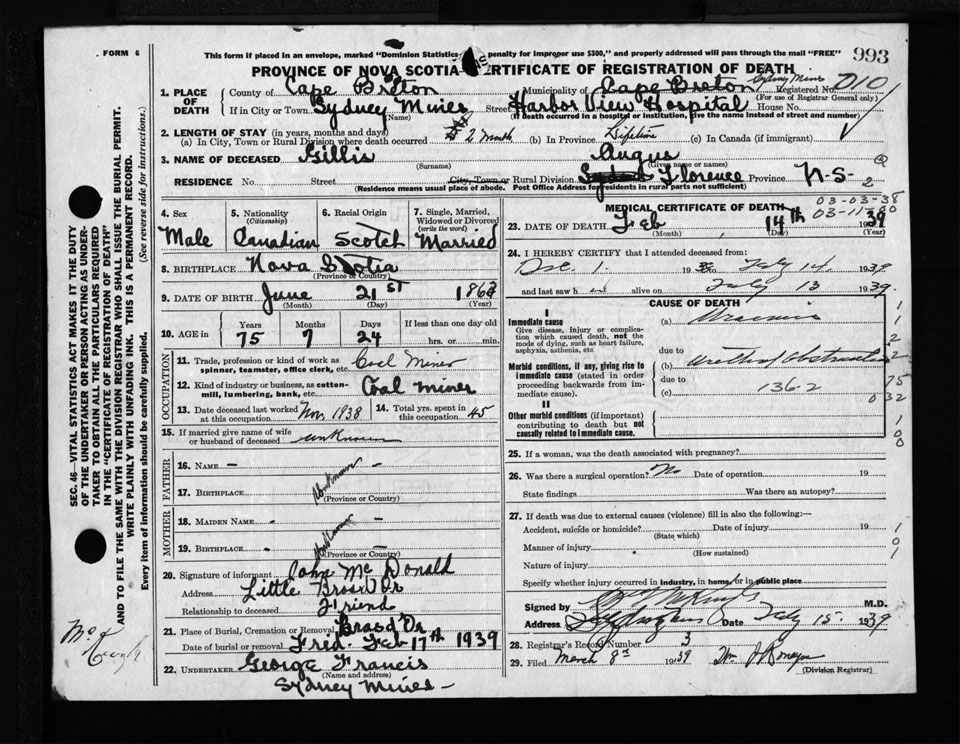 FORM 6
This form if placed in an envelope, marked "Dominion Statistics penalty for improper use $300," and properly addressed will pass through the mail "FREE"
993
PROVINCE OF NOVA SCOTIA—CERTIFICATE OF REGISTRATION OF DEATH
Sydney Mines
1. PLACE OF DEATH County of Cape Breton Municipality of Cape Breton Registered No. 710
(For use of Registrar General only)
If in City or Town Sydney Mines Street Harbor View Hospital House No.
(Name) (If death occurred in a hospital or institution, give the name instead of street and number)
2. LENGTH OF STAY (in years, months and days)
(a) In City, Town or Rural Division where death occurred 2 Month (b) In Province Lifetime (c) In Canada (if immigrant)
3. NAME OF DECEASED Gillis Angus
(Surname) (Given name or names)
RESIDENCE No. Street City, Town or Rural Division Florence Province N-S-
(Residence means usual place of abode. Post Office Address for residents in rural parts not sufficient)
2
03-03-38
03-11-
4. Sex Male
5. Nationality (Citizenship) Canadian
6. Racial Origin Scotch
7. Single, Married, Widowed or Divorced (write the word) Married
8. BIRTHPLACE Nova Scotia
(Province or Country)
9. DATE OF BIRTH June 21ST 1863
(Month) (Day) (Year)
10. AGE in Years Months Days If less than one day
75 7 24 hrs. or min.
OCCUPATION
11. Trade, profession or kind of work as spinner, teamster, office clerk, etc. Coal Miner
12. Kind of industry or business, as cotton-mill, lumbering, bank, etc. Coal miner
13. Date deceased last worked at this occupation Nov, 1938
14. Total yrs. spent in this occupation 45
15. If married give name of wife or husband of deceased unknown
FATHER
16. NAME —
17. BIRTHPLACE Unknown —
(Province or Country)
MOTHER
18. MAIDEN NAME -
19. BIRTHPLACE - Unknown —
(Province or Country)
20. Signature of informant John McDonald
Address Little Brasd'Or
Relationship to deceased Friend
21. Place of Burial, Cremation or Removal Brasd'Or
Date of burial or removal Fred. Feb 17th 1939
22. UNDERTAKER George Francis
(Name and address)
Sydney Mines -
MEDICAL CERTIFICATE OF DEATH
23. DATE OF DEATH Feb 14th 1939
(Month) (Day) (Year)
24. I HEREBY CERTIFY that I attended deceased from:
Dec 1. 19 to Feby 14. 1939
and last saw h alive on Feby 13 1939.
CAUSE OF DEATH
I
Immediate cause
Give disease, injury or complication which caused death, not the mode of dying, such as heart failure, asphyxia, asthenia, etc.
(a) Uraemia
due to
Morbid conditions, if any, giving rise to immediate cause (stated in order proceeding backwards from immediate cause).
(b) urethral obstruction
due to
(c) 136-2
II
Other morbid conditions (if important) contributing to death but not causally related to immediate cause.
1
1
2
2
75
032
1
0
0
25. If a woman, was the death associated with pregnancy?
26. Was there a surgical operation? No Date of operation 19
State findings Was there an autopsy?
27. If death was due to external causes (violence) fill in also the following:—
Accident, suicide or homicide? Date of injury 19
(State which)
Manner of injury
(How sustained)
Nature of injury
Specify whether injury occurred in industry, in home, or in public place
1
0
1
Signed by M.D.
Address Date Feby 15. 1939
28. Registrar's Record Number 3
29. Filed March 8th 1939
(Division Registrar)
SEC. 46—VITAL STATISTICS ACT MAKES IT THE DUTY OF THE UNDERTAKER OR PERSON ACTING AS UNDERTAKER TO OBTAIN ALL THE PARTICULARS REQUIRED IN THE "CERTIFICATE OF REGISTRATION OF DEATH"
AND TO FILE THE SAME WITH THE DIVISION REGISTRAR WHO SHALL ISSUE THE BURIAL PERMIT.
WRITE PLAINLY WITH UNFADING INK. THIS IS A PERMANENT RECORD.
Every item of information should be carefully supplied. (See reverse side for instructions.)